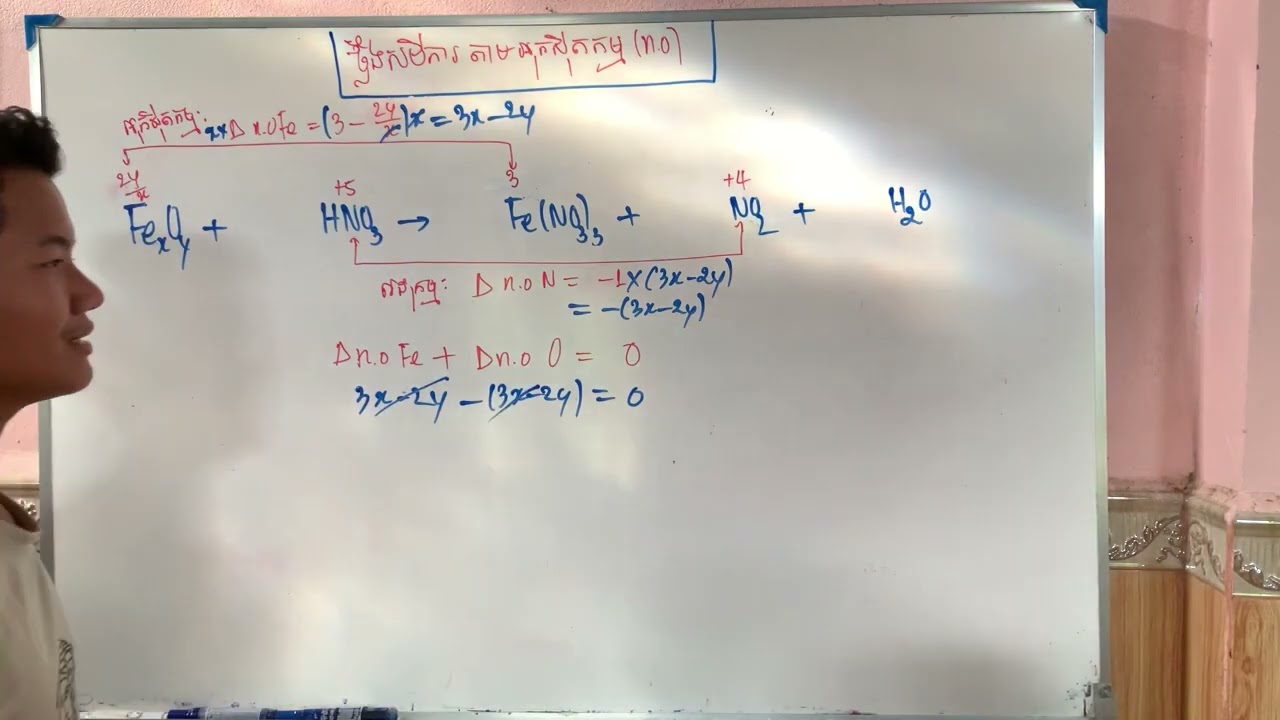 ថ្លឹងសមីការ តាមអុកស៊ីតកម្ម (n.o)
អុកស៊ីតកម្ម: x× Δ n.o Fe = (3 - 2y/x)x = 3x - 2y
2y/x +5 3 +4
FexOy + HNO3 → Fe(NO3)3 + NO2 + H2O
រេដុកម្ម: Δ n.o N = -1×(3x-2y)
= -(3x-2y)
Δn.o Fe + Δn.o O = 0
3x-2y - (3x-2y) = 0